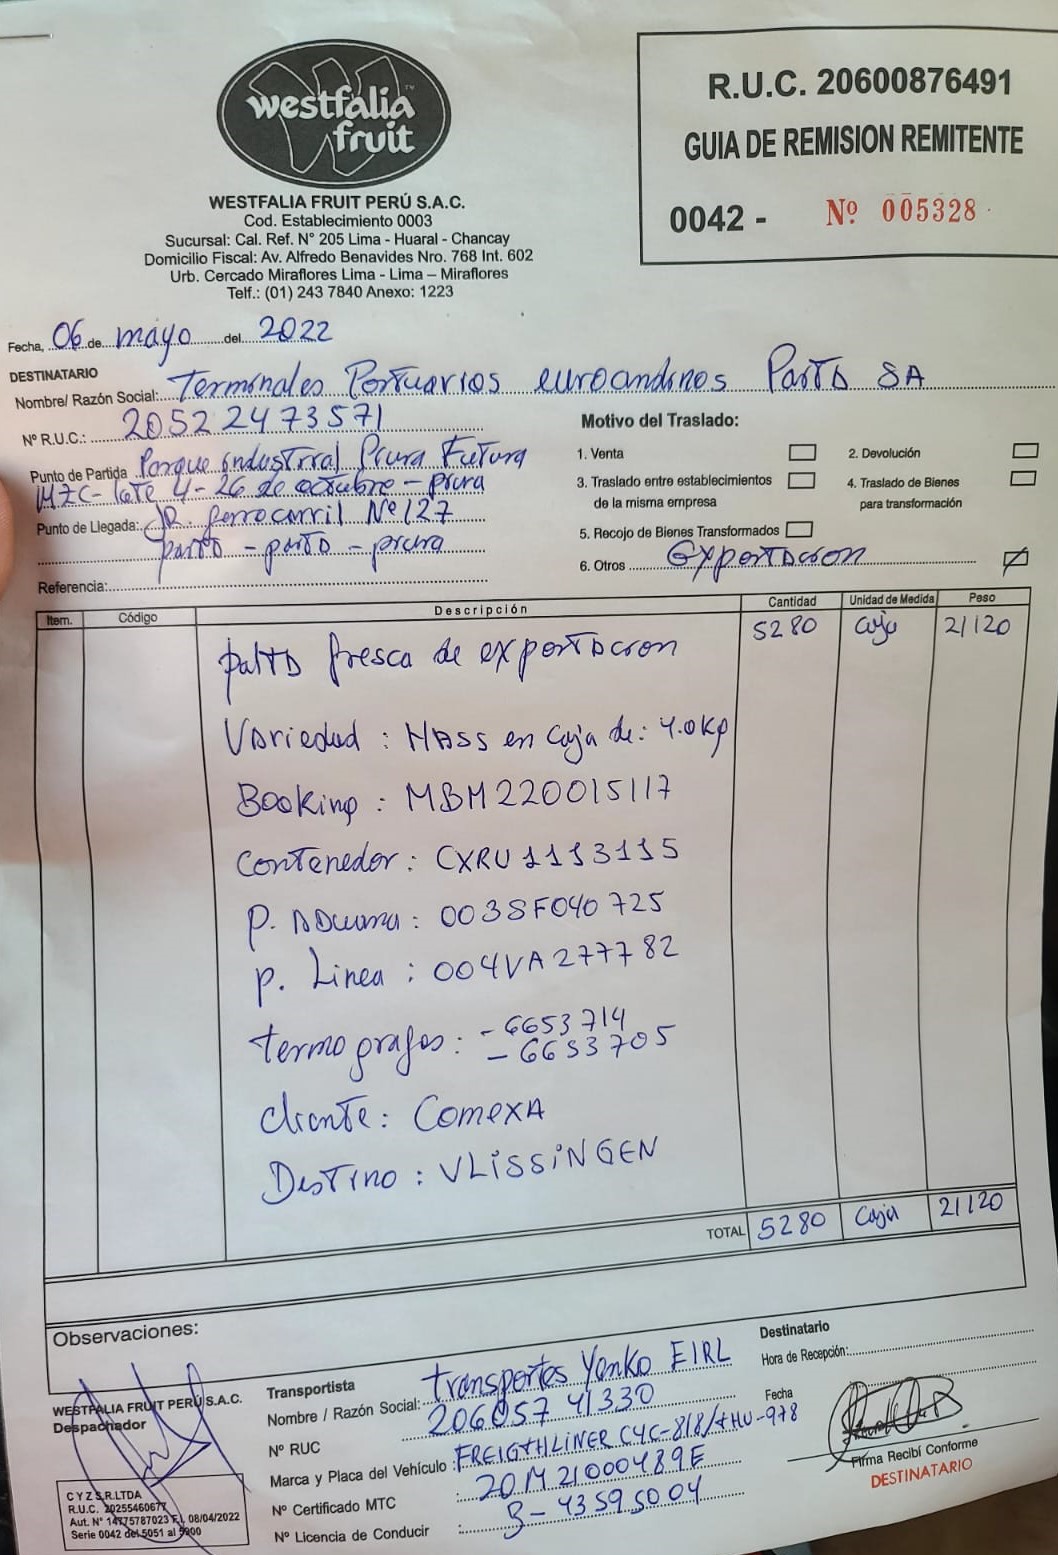 westfalia
fruit
WESTFALIA FRUIT PERÚ S.A.C.
Cod. Establecimiento 0003
Sucursal: Cal. Ref. N° 205 Lima - Huaral - Chancay
Domicilio Fiscal: Av. Alfredo Benavides Nro. 768 Int. 602
Urb. Cercado Miraflores Lima - Lima – Miraflores
Telf.: (01) 243 7840 Anexo: 1223
R.U.C. 20600876491
GUIA DE REMISION REMITENTE
0042 - Nº 005328
Fecha, 06 de mayo del 2022
DESTINATARIO
Nombre/ Razón Social: Terminales Portuarios euroandinos Paita SA
Nº R.U.C.: 20522473571
Punto de Partida Parque industrial Piura Futura
MZC- lote 4 - 26 de octubre - piura
Punto de Llegada: JR. ferrocarril Nº 127
paita - paita - piura
Referencia:
Motivo del Traslado:
1. Venta
2. Devolución
3. Traslado entre establecimientos
de la misma empresa
4. Traslado de Bienes
para transformación
5. Recojo de Bienes Transformados
6. Otros Exportacion
Item. Código Descripción Cantidad Unidad de Medida Peso
palta fresca de exportacion 5280 Caja 21120
Variedad : HASS en Caja de: 4.0kg
Booking : MBM220015117
Contenedor : CXRU 1113115
P. Aduana : 003SF040725
P. Linea : 004VA277782
termografos : - 6653714
- 6653705
Cliente : Comexa
Destino : VLISSINGEN
TOTAL 5280 Caja 21120
Observaciones:
WESTFALIA FRUIT PERÚ S.A.C.
Despachador
CYZ S.R.LTDA
R.U.C. 20255460677
Aut. N° 14775787023 F.I. 08/04/2022
Serie 0042 del 5051 al 5900
Transportista
Nombre / Razón Social: transportes Yenko EIRL
Nº RUC 20605741330
Marca y Placa del Vehículo : FREIGTHLINER C4C-818/tHU-978
Nº Certificado MTC : 20M21000489E
Nº Licencia de Conducir : B-43595004
Destinatario
Hora de Recepción:
Fecha
Firma Recibí Conforme
DESTINATARIO